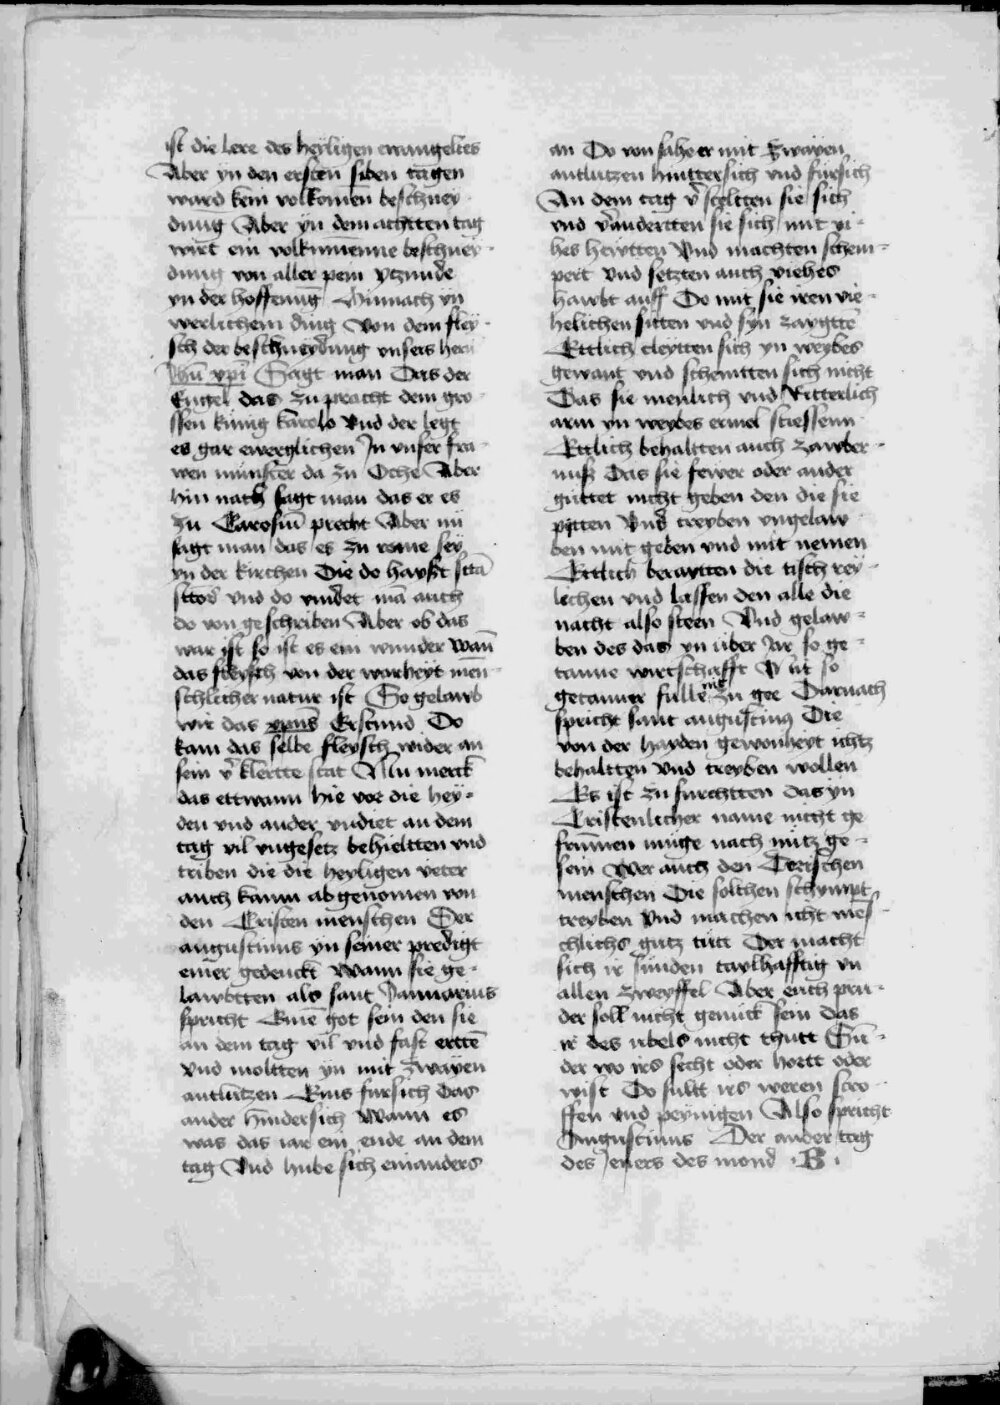 ist die lere des heyligen ewangelies
Aber yn den ersten siben tagen
ward kein volkomen beschney
dung Aber yn dem achtten tag
wirt ein volkumenne beschney-
dung von aller pein ytzunde
yn der hoffenung Hinnach yn
werlichem ding Von dem fley-
sch der beschneydung vnsers hern
Jhũ xp̃i Sagt man Das der
Engel das zu pracht dem gro-
ssen kunig karolo Vnd der legt
es gar ewerglichen In vnser fra-
wen munster da zu Oche Aber
hin nach sagt man das er es
zu Carosiũ precht Aber nu
sagt man das es zu rome sey
yn der kirchen Die do hayst sctã
sctor̃ vnd do vindet mã auch
do von geschriben Aber ob das
war ist so ist es ein wunder Wañ
das fleysch von der warheyt men-
schlicher natur ist So gelawb
wir das xpũs Erstund Do
kam das selbe fleysch wider an
sein v̉klertte stat Nu merck
das ettwann hie vor die hey-
den vnd ander vndiet an dem
tag vil vngesetz behieltten vnd
triben die die heyligen veter
auch kaum ab genomen von
den Cristen menschen Der
augustinus yn seiner predigt
einer gedenckt Wann sie ge-
lawbtten als sant Januarius
spricht Einẽ got sein den sie
an dem tag vil vnd fast erttẽ
vnd moltten yn mit zwayen
antlutzen Eins fursich Das
ander hindersich Wann es
was das iar ein ende an dem
tag Vnd hube sich einanders
an Do von sahe er mit Zwayen
antlutzen hinttersich vnd fursich
An dem tag v̉steltten sie sich
vnd v̉andertten sie sich mit vi-
hes hewtten Vnd machten schem-
pert vnd setzten auch viehes
hawbt auff Do mit sie iren vie-
helichen sitten vnd syn zaygttẽ
Ettlich cleytten sich yn weybes
gewant vnd schemtten sich nicht
Das sie menlich vnd Ritterlich
arm yn weybes ermel stiessenn
Ettlich behaltten auch zawber-
nuß Das sie fewer oder ander
guttet nicht geben den die sie
pitten Vnd treyben vngelaw-
ben mit geben vnd mit nemen
Ettlich beraytten die tisch rey-
lichen vnd lassen den alle die
nacht also steen Vnd gelaw-
ben des das yn uber Jar so ge-
tanne wirtschafft Vñ so
getanner fulle nit zu gee Darnach
spricht sant augustinus Die
von der hayden gewonheyt ichtz
behaltten vnd treyben wollen
Es ist zu furchtten das yn
Cristenlicher name nicht ge
frummen muge nach nutz ge-
sein Wer auch den Torischen
menschen Die solchen schympt
treyben Vnd machen icht mes-
chlichs gutz tutt Der macht
sich ir sunden taylhafftig yn
allen zweyffel Aber euch pru-
der soll nicht genuck sein das
ir des ubels nicht thutt Sũ-
der wo irs secht oder hortt oder
wist Do sultt irs weren stro-
ffen vnd peynigen Also spricht
Augustinus Der ander tag
des Jeners des mond · B ·